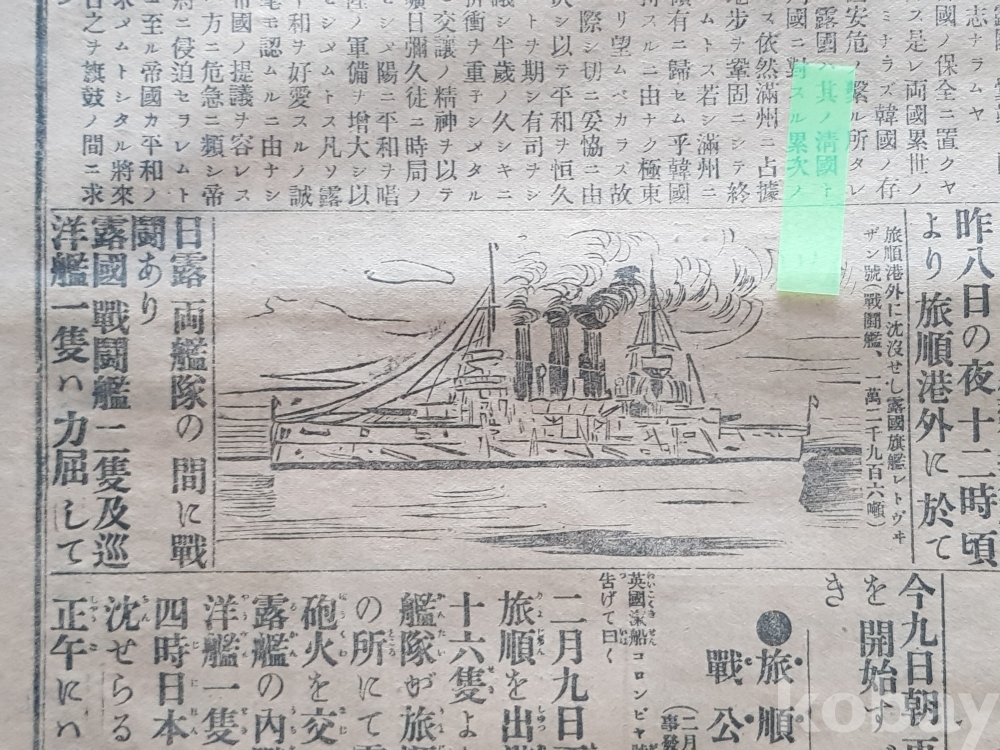 志ナラムヤ
國ノ保全ニ置クヤ
ス是レ両國累世ノ
ミナラズ韓國ノ存
安危ノ繋ル所タレ
露國ハ其ノ清國ト
國ニ對スル累次ノ
ス依然滿州ニ占據
地歩ヲ鞏固ニシテ終
ムトス若シ滿州ニ
領有ニ歸セム乎韓國
持スルニ由ナク極東
リ望ムベカラズ故
際シ切ニ妥協ニ由
決シ以テ平和ヲ恒久
トヲ期シ有司ヲシ
議シ半歳ノ久シキニ
折衝ヲ重子シメタル
モ交讓ノ精神ヲ以テ
曠日彌久徒ニ時局ノ
シメ陽ニ平和ヲ唱
陸ノ軍備ヲ增大シ以
セシメムトス凡ソ露
平和ヲ好愛スルノ誠
毫モ認ムルニ由ナシ
帝國ノ提議ヲ容レス
方ニ危急ニ類シ帝
將ニ侵迫セラレムト
ニ至ル帝國カ平和ノ
求メムトシタル將來
日之ヲ旗鼓ノ間ニ求
昨八日の夜十二時頃
より旅順港外に於て
旅順港外に沈沒せし露國旗艦レトヴヰ
ザン號(戰鬪艦、一萬二千九百六噸)
日露両艦隊の間に戰
鬪あり
露國戰鬪艦二隻及巡
洋艦一隻ハ力屈して
今九日朝正
を開始す
き
●旅順
戰公
(二月
英國滊船コロンビヤ號
告げて曰く
二月九日正
旅順を出港
十六隻よ
艦隊が旅
の所にて
砲火を交
露艦の内戰
洋艦一隻
四時日本
沈せらる
正午にハ
kobay